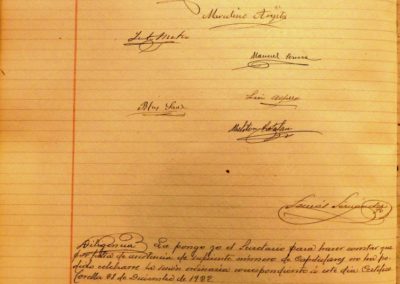 Marcelino Angós
Manuel
Luis
Blas Sanz
Melitón Catalán
Tomás Fernandez
Diligencia La pongo yo el Secretario para hacer constar que
por falta de asistencia de suficiente número de Capitulares no ha po-
dido celebrarse la sesión ordinaria correspondiente á este dia. Certifico
Corella 21 de Diciembre de 1922